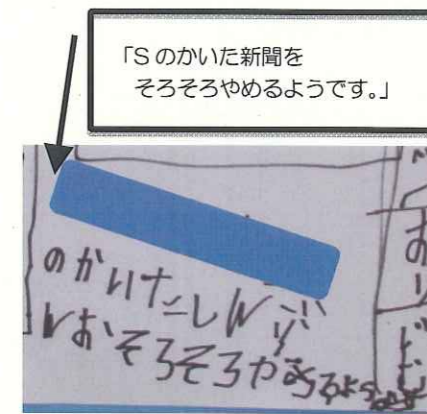 「Sのかいた新聞を
そろそろやめるようです。」
のかいたしんぶ
んおそろそろやめるようです
お